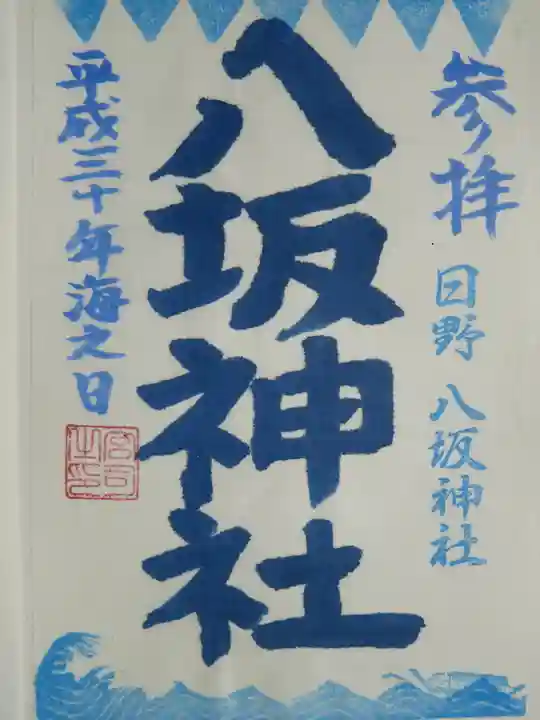 参拝
日野 八坂神社
八坂神社
平成三十年海之日
宮司之印